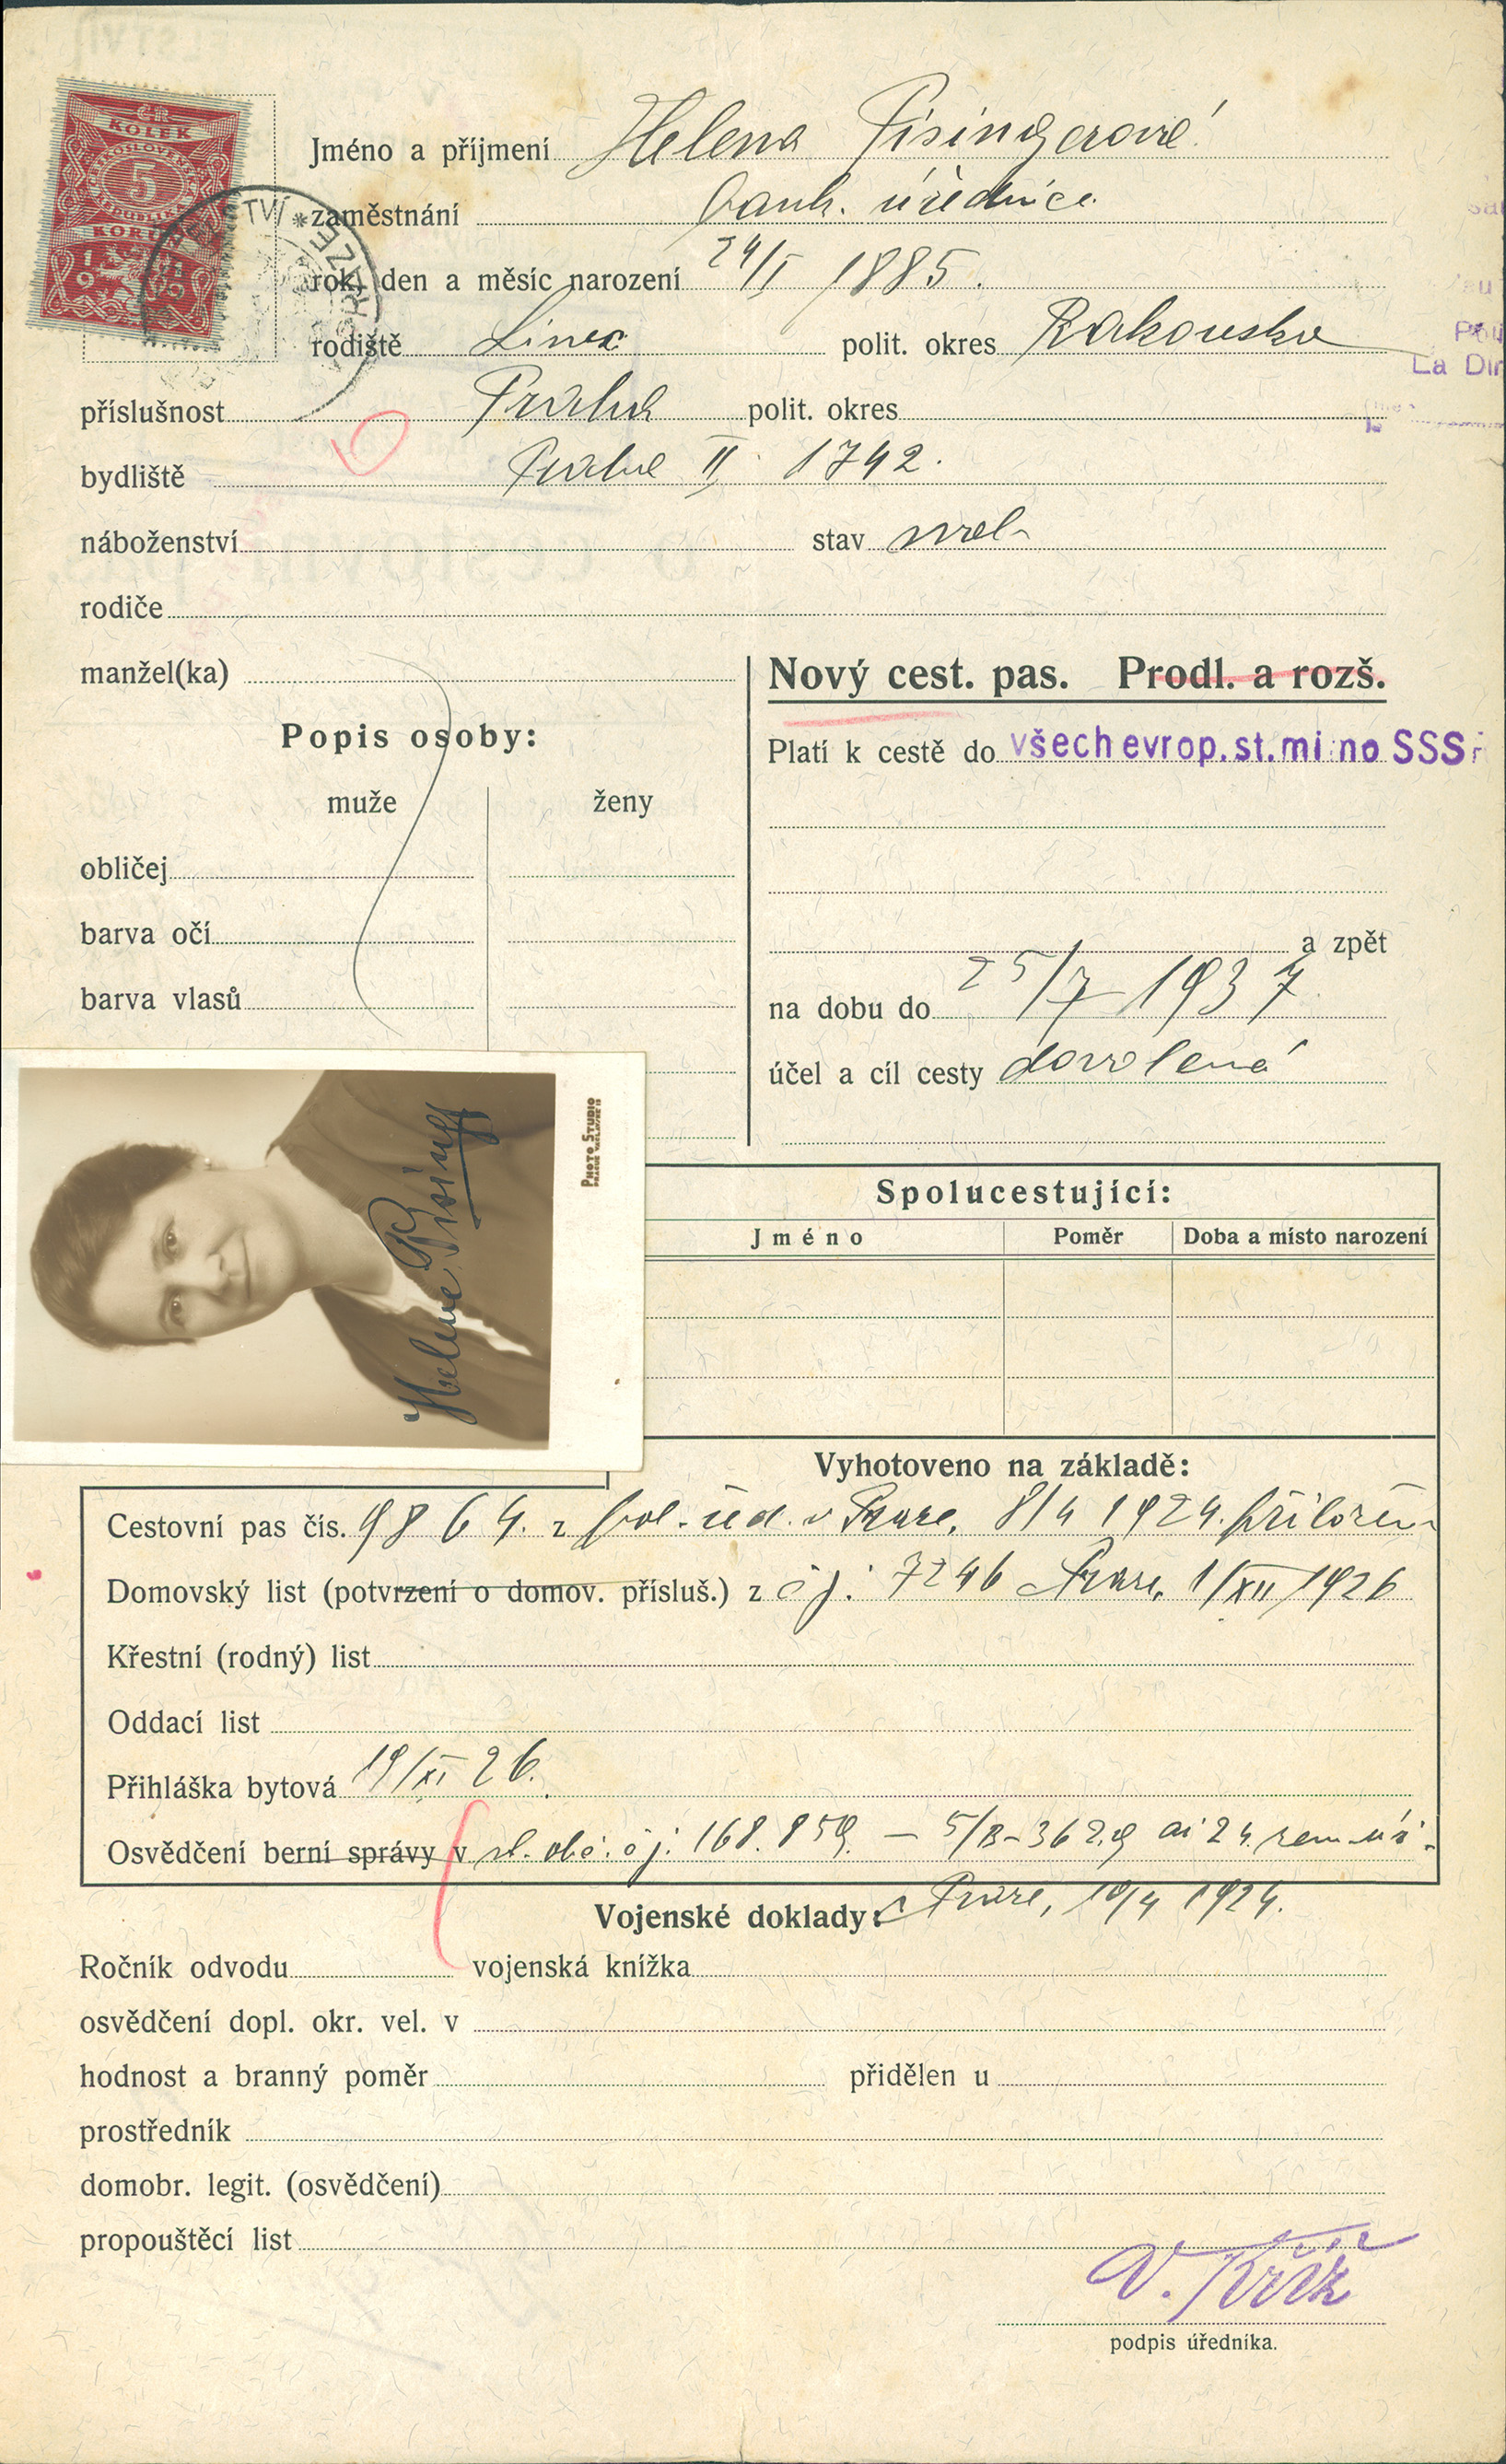 ČR
KOLEK
ČESKOSLOVENSKÁ
REPUBLIKA
5
KORUN
19
Jméno a příjmení Helena Pisingerová
zaměstnání bank. úřednice
rok, den a měsíc narození 24/I 1885.
rodiště Linec polit. okres Rakousko
La Dir
příslušnost Praha polit. okres
bydliště Praha II 1742.
náboženství stav
rodiče
manžel(ka)
Nový cest. pas. Prodl. a rozš.
Popis osoby:
Platí k cestě do všech evrop. st. mimo SSSR
muže ženy
obličej
barva očí
a zpět
barva vlasů
na dobu do 25/7 1937
účel a cíl cesty dovolená
PHOTO STUDIO
Helene Pising
Spolucestující:
Jméno Poměr Doba a místo narození
Vyhotoveno na základě:
Cestovní pas čís. 9864. z pol. úřd. v Praze, 8/4 1924. přiložen
Domovský list (potvrzení o domov. přísluš.) z čj. 7246 Praze, 1/XII/1926
Křestní (rodný) list
Oddací list
Přihláška bytová 19/XI 26.
Osvědčení berní správy v čj. 168.859. –
Vojenské doklady:
Praze, 10/4 1924.
Ročník odvodu vojenská knížka
osvědčení dopl. okr. vel. v
hodnost a branný poměr přidělen u
prostředník
domobr. legit. (osvědčení)
propouštěcí list
V. Kříž
podpis úředníka.